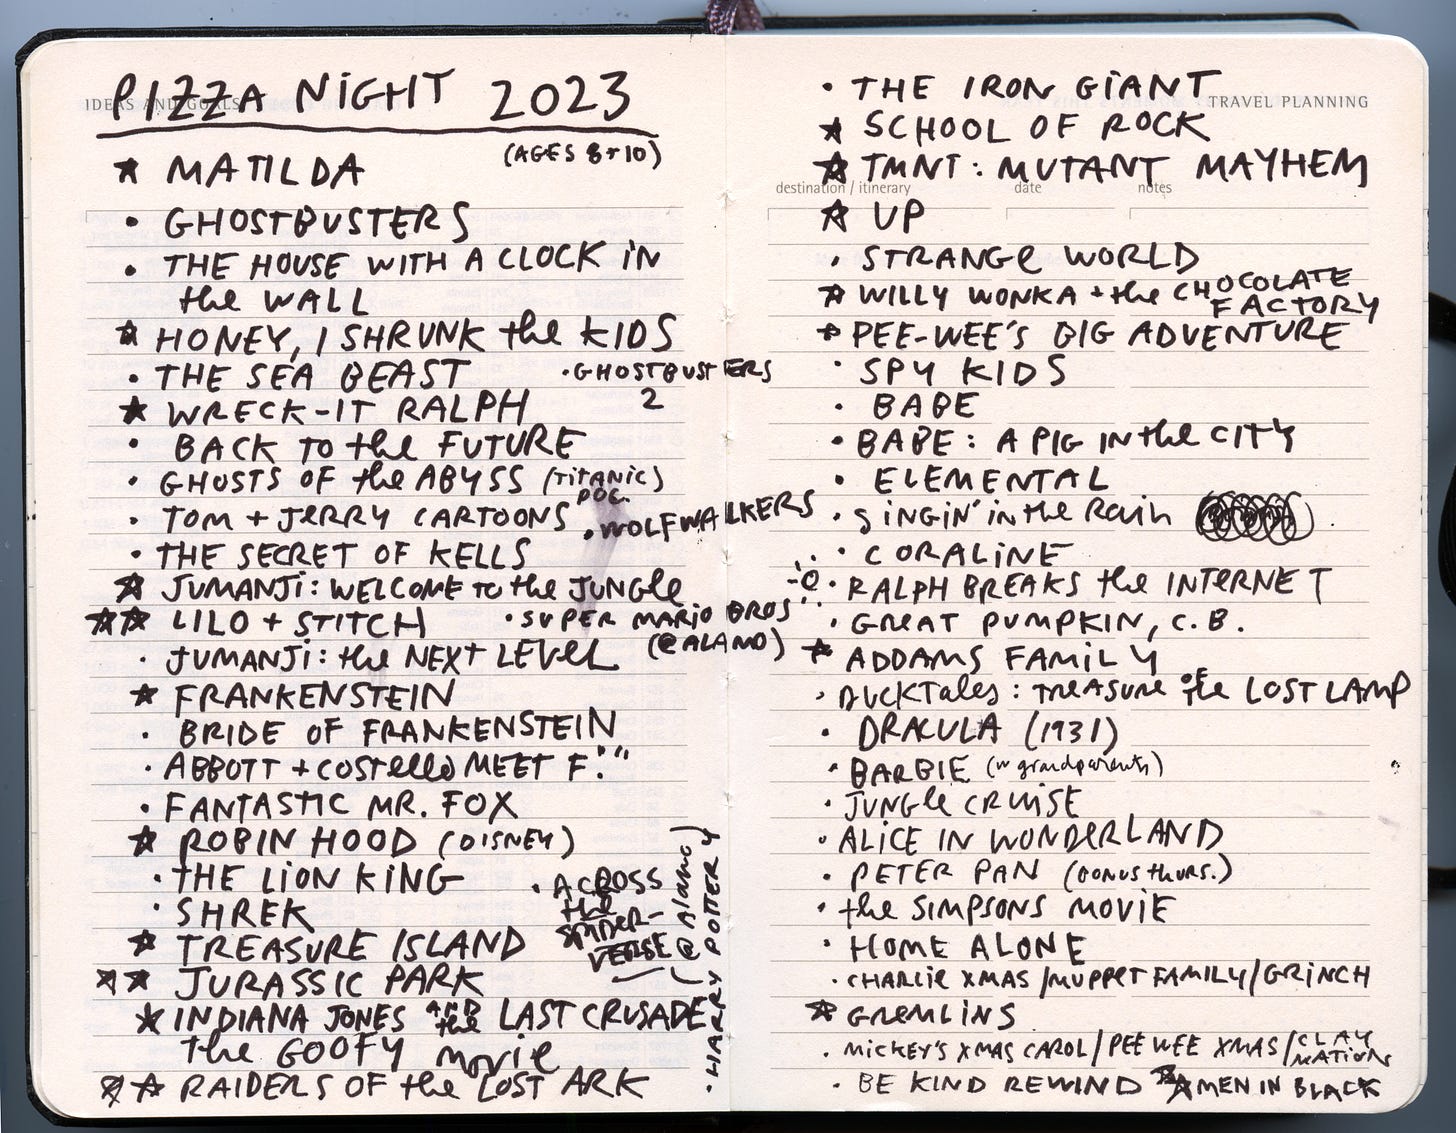 IDEAS AND GOALS
PIZZA NIGHT 2023
(AGES 8+10)
★ MATILDA
• GHOSTBUSTERS
• THE HOUSE WITH A CLOCK IN
the WALL
★ HONEY, I SHRUNK the KIDS
• THE SEA BEAST
• GHOSTBUSTERS
2
★ WRECK-IT RALPH
• BACK TO the FUTURE
• GHOSTS OF the ABYSS (TITANIC)
DOC.
• TOM + JERRY CARTOONS
• WOLFWALKERS
• THE SECRET OF KELLS
★ JUMANJI: WELCOME TO the JUNGLE
★★ LILO + STITCH
• SUPER MARIO BROS
(@ALAMO)
• JUMANJI: the NEXT LEVEL
★ FRANKENSTEIN
BRIDE OF FRANKENSTEIN
• ABBOTT + COSTELLO MEET F. " "
• FANTASTIC MR. FOX
★ ROBIN HOOD (DISNEY)
• THE LION KING
• ACROSS
the
SPIDER-
VERSE
(@ Alamo)
• SHREK
★ TREASURE ISLAND
★★ JURASSIC PARK
★ INDIANA JONES AND the LAST CRUSADE
the GOOFY movie
★★ RAIDERS OF the LOST ARK
• HARRY POTTER Y
TRAVEL PLANNING
destination / itinerary date notes
• THE IRON GIANT
★ SCHOOL OF ROCK
★ TMNT: MUTANT MAYHEM
★ UP
• STRANGE WORLD
★ WILLY WONKA + the CHOCOLATE
FACTORY
★ PEE-WEE'S BIG ADVENTURE
• SPY KIDS
• BABE
• BABE: A PIG IN the CITY
• ELEMENTAL
• SINGIN' in the Rain
• CORALINE
• RALPH BREAKS the INTERNET
• GREAT PUMPKIN, C.B.
★ ADDAMS FAMILY
• DUCKTales: TREASURE OF the LOST LAMP
• DRACULA (1931)
• BARBIE (w grandparents)
• JUNGLE CRUISE
• ALICE IN WONDERLAND
• PETER PAN (BONUS thurs.)
• the SIMPSONS MOVIE
• HOME ALONE
• CHARLIE XMAS/MUPPET FAMILY/GRINCH
★ GREMLINS
• MICKEY'S XMAS CAROL/PEE WEE XMAS/CLAY
MATION
• BE KIND REWIND ★★ MEN IN BLACK